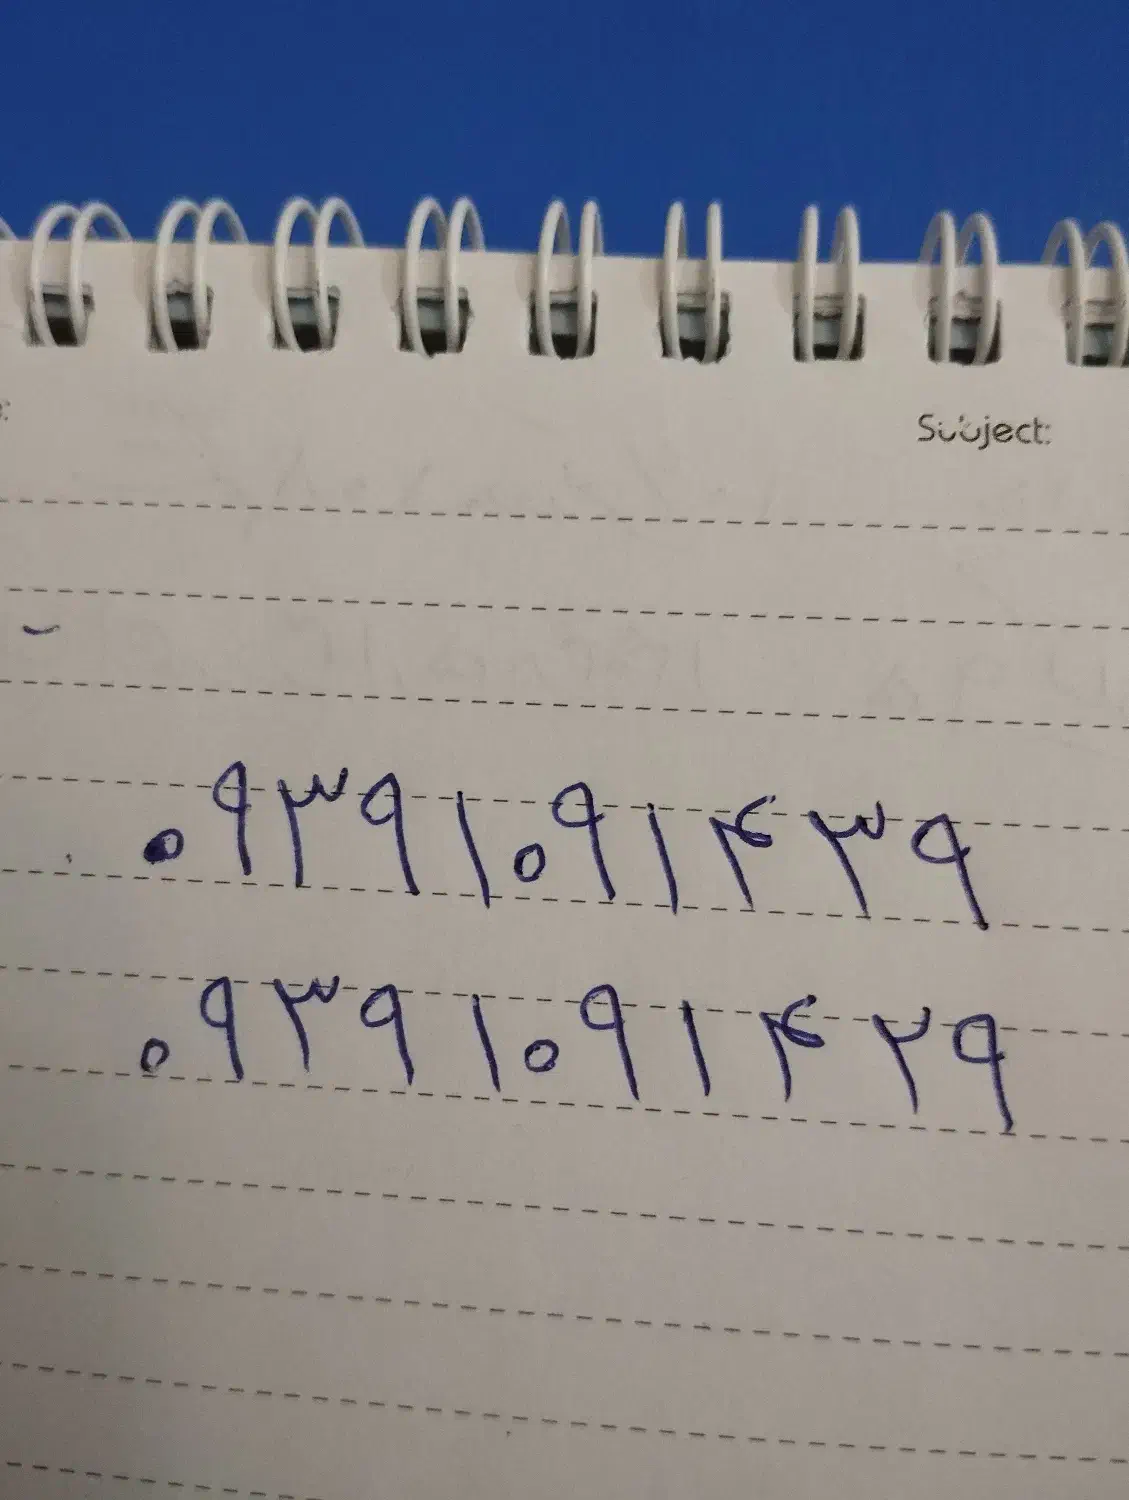 Subject:
۰۹۳۹۱۰۹۱۴۳۹
۰۹۳۹۱۰۹۱۴۲۹